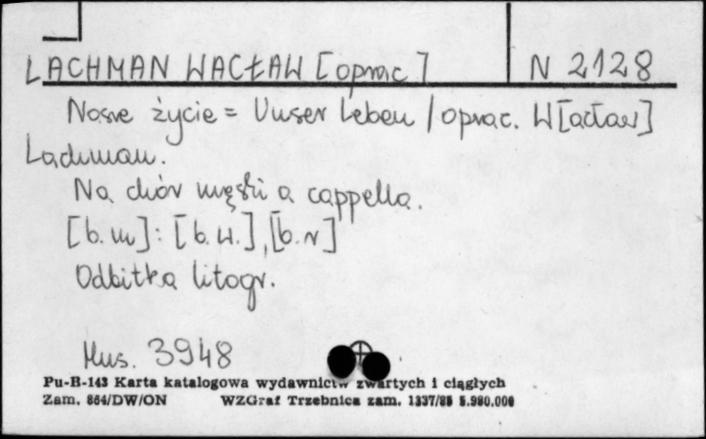 LACHMAN WACŁAW [oprac.] N 2128
Nasze życie = Unser Leben / oprac. W[acław]
Lachman.
Na chór męski a cappella.
[b.m]: [b.w.], [b.r]
Odbitka litogr.
Mus. 3948
Pu-B-143 Karta katalogowa wydawnictw zwartych i ciągłych
Zam. 864/DW/ON WZGraf Trzebnica zam. 1337/88 5.980.000